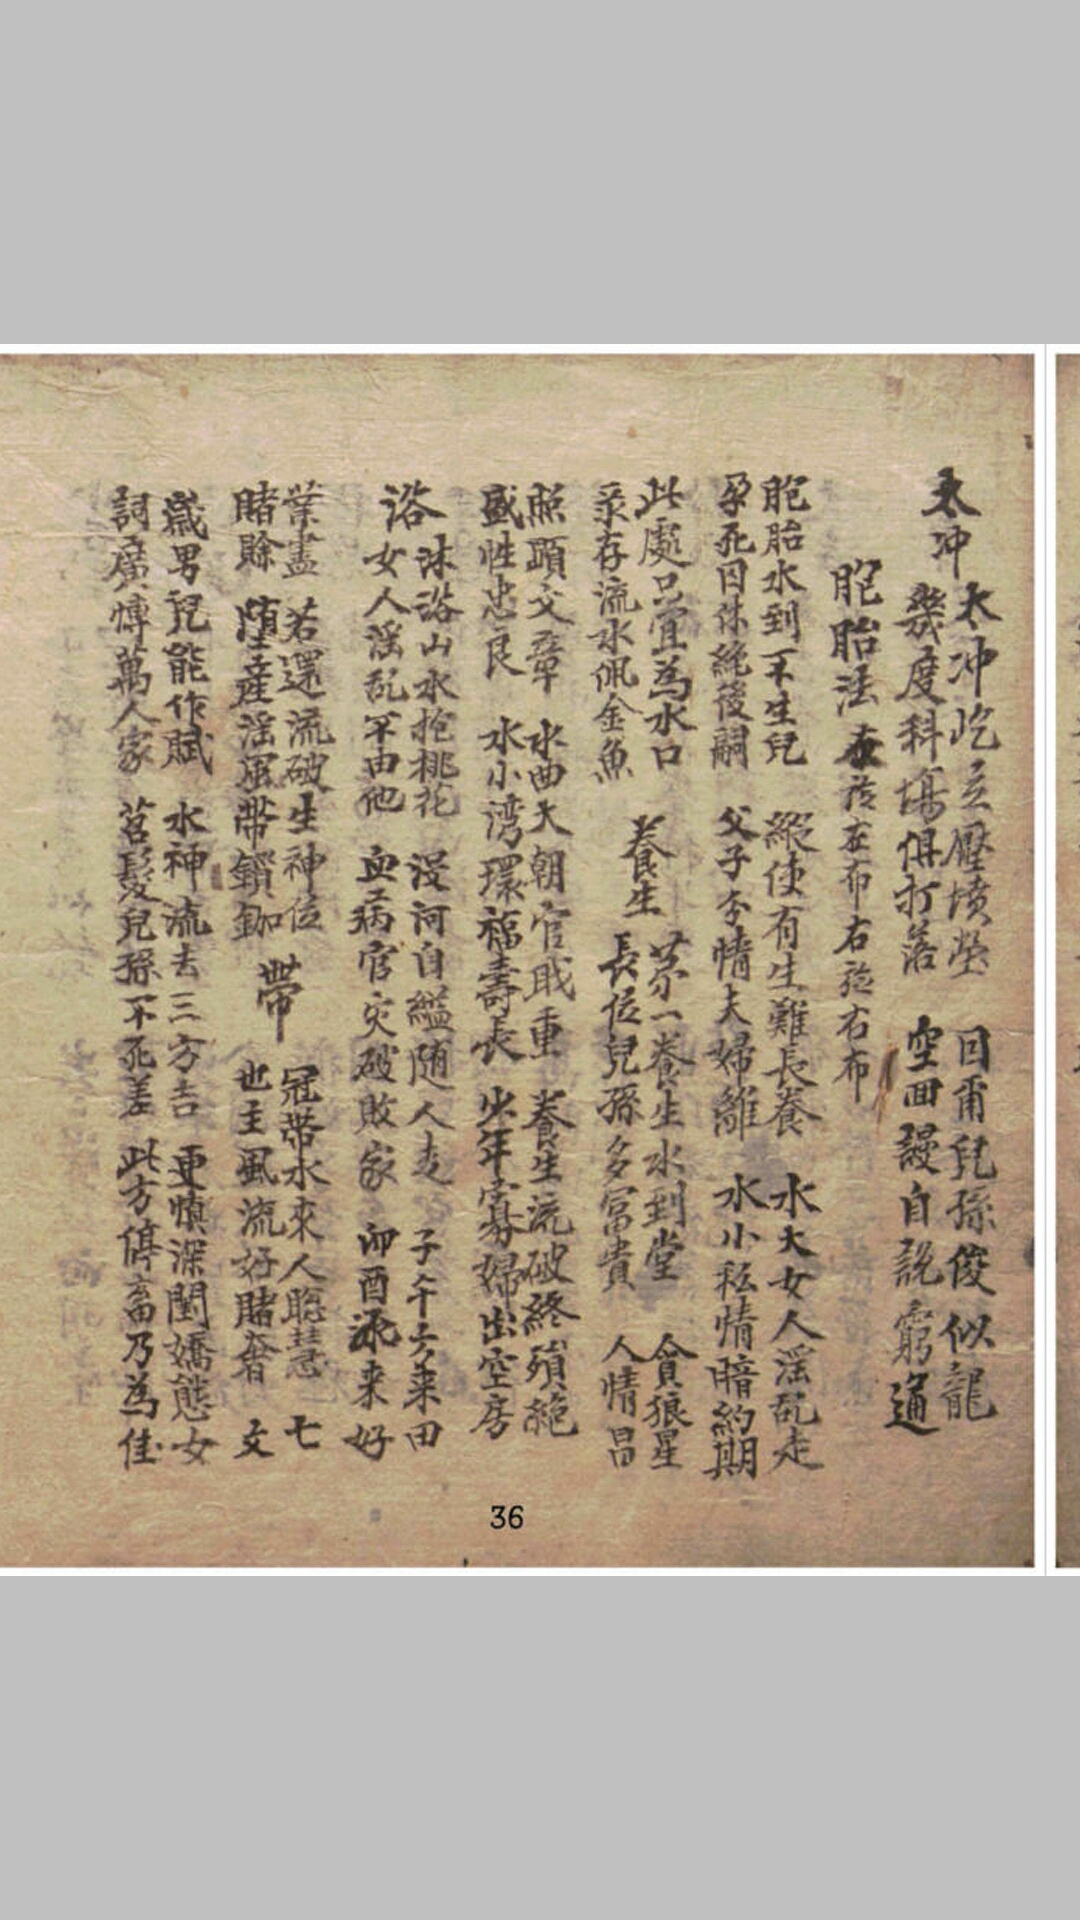 太冲
太冲屹立壓墳塋 回甭兒孫俊似龍
幾度科場俱打落 空回謾自説窮通
胞胎法 在裆在布右裆右布
胞胎水到不生兒 縱使有生難長養 水大女人滛乱走
孕死囚休絶後嗣 父子李情夫婦離 水小私情暗約期
此處只宜為水口
录存流水佩金魚
養生
第一養生水到堂 貪狼星
長位兒孫多富貴 人情昌
照顕文章 水曲大朝官戢重 養生流破終須絶
盛性忠良 水小湾環福壽長 少年寡婦出空房
浴
沐浴山水抱桃花 没河自縊随人走 子午方来田
女人滛乱不由他 血病官灾破敗家 卯酉流来好
業盡 若還流破生神位
賭賒 堕産滛濫帶鎖鉫
帶
冠帶水來人聡慧 七
也主風流好賭奢 文
歲男兒能作賦 水神流去三方吉 更慎深閨嬌態女
詞廣慱萬人家 苕髮兒孫不死差 此方停畜乃為佳
36